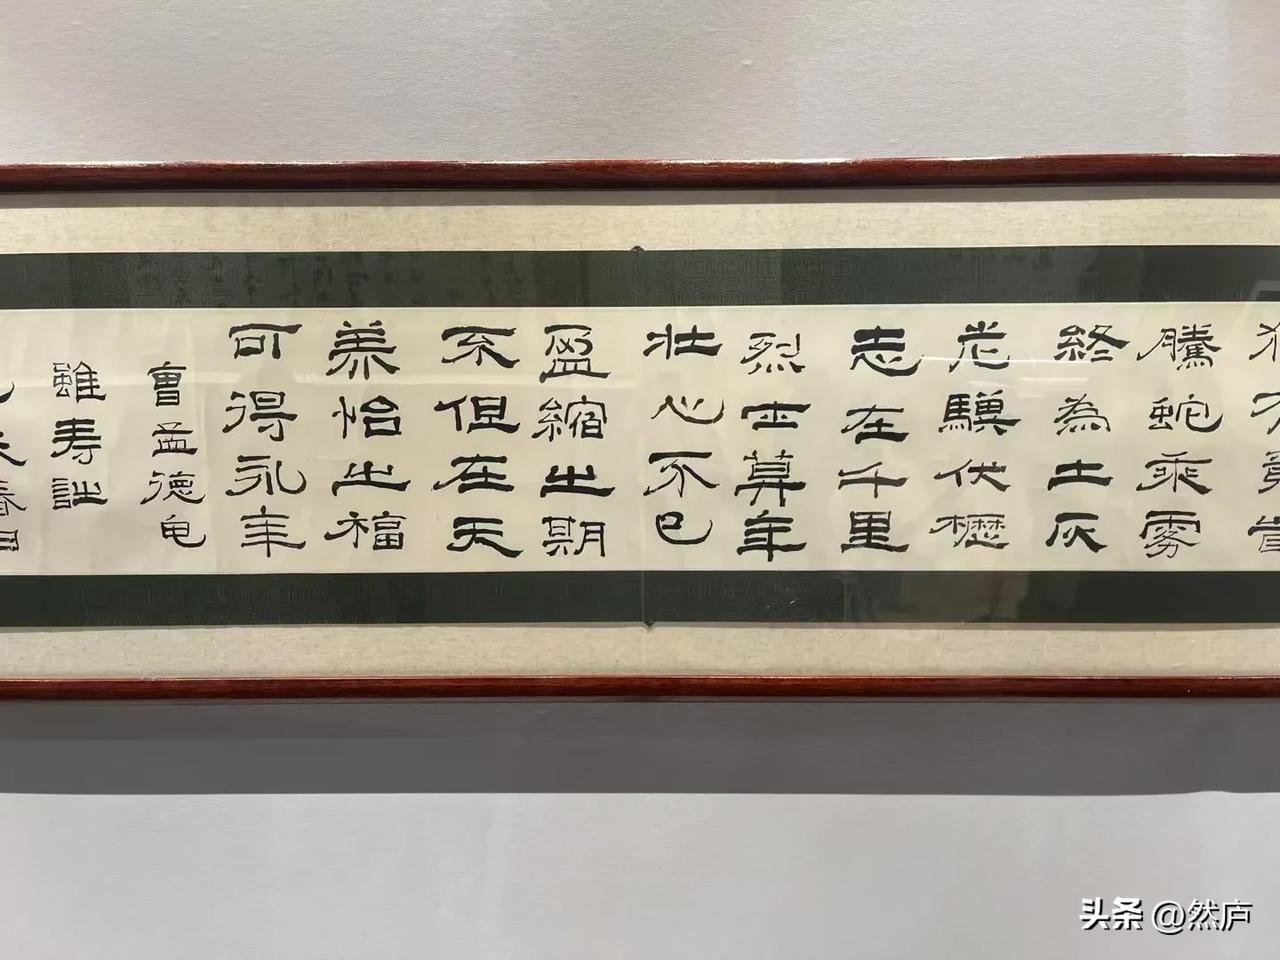 騰蛇乘霧
終為土灰
老驥伏櫪
志在千里
烈士莫年
壮心不已
盈縮之期
不但在天
养怡之福
可得永年
曹孟德龟
雖寿詩
头条 @然庐